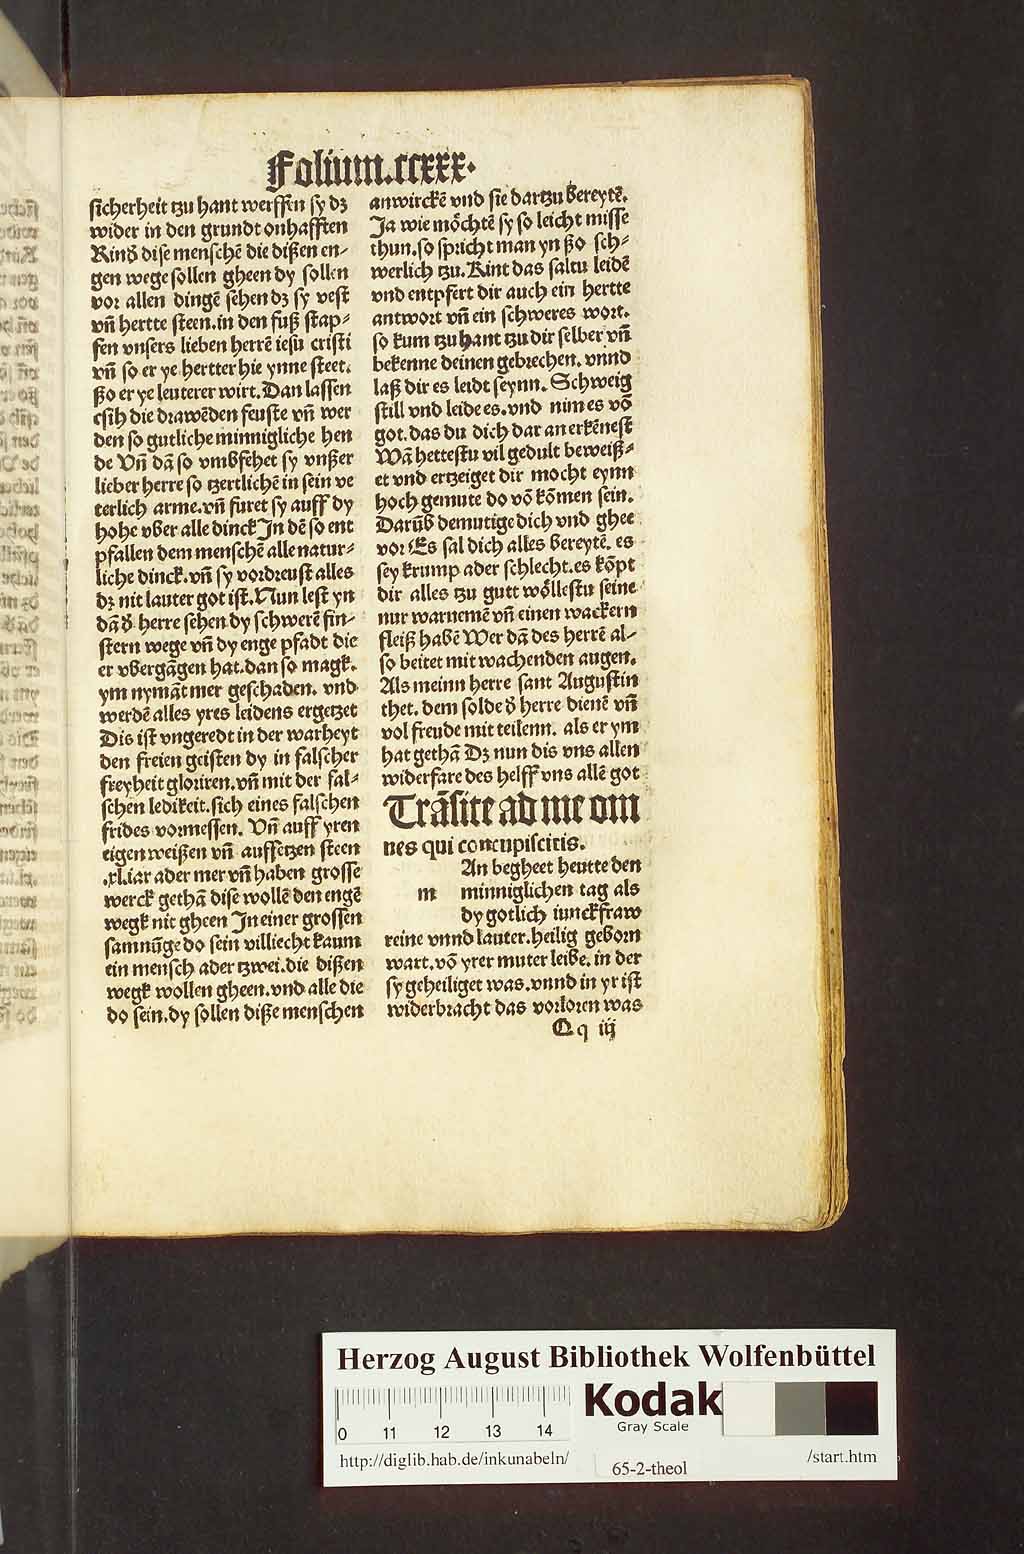 Folium.ccxxx.
sicherheit tzu hant werffen sy dʒ
wider in den grundt onhafften
Rind̕ dise menschē die dißen en-
gen wege sollen gheen dy sollen
vor allen dingē sehen dʒ sy vest
vn̄ hertte steen.in den fuß stap-
fen vnsers lieben herrē iesu cristi
vn̄ so er ye hertter hie ynne steet.
ßo er ye leuterer wirt.Dan lassen
csih die drawēden feuste vn̄ wer
den so gutliche minnigliche hen
de Vn̄ dā so vmbfehet sy vnßer
lieber herre so tzertlichē in sein ve
terlich arme.vn̄ furet sy auff dy
hohe vber alle dinck Jn dē so ent
pfallen dem menschē alle natur-
liche dinck.vn̄ sy vordreust alles
dʒ nit lauter got ist.Nun lest yn
dā d̕ herre sehen dy schwerē fin-
stern wege vn̄ dy enge pfadt die
er vbergāgen hat.dan so magk.
ym nymāt mer geschaden. vnd
werdē alles yres leidens ergetzet
Dis ist vngeredt in der warheyt
den freien geisten dy in falscher
freyheit gloriren.vn̄ mit der fal-
schen ledikeit.sich eines falschen
frides vormessen. Vn̄ auff yren
eigen weißen vn̄ auffsetzen steen
.xl.iar ader mer vn̄ haben grosse
werck gethā dise wollē den engē
wegk nit gheen Jn einer grossen
samnūge do sein villiecht kaum
ein mensch ader tzwei.die dißen
wegk wollen gheen.vnd alle die
do sein.dy sollen diße menschen
anwirckē vnd sie dartzu bereytē.
Ja wie möchtē sy so leicht misse
thun.so spricht man yn ßo sch-
werlich tzu.Kint das saltu leidē
vnd entpfert dir auch ein hertte
antwort vn̄ ein schweres wort.
so kum tzu hant tzu dir selber vn̄
bekenne deinen gebrechen. vnnd
laß dir es leidt seynn. Schweig
still vnd leide es.vnd nim es vō
got.das du dich dar an erkēnest
Wā hettestu vil gedult beweiß-
et vnd ertzeiget dir mocht eynn
hoch gemute do vō kōmen sein.
Darūb demutige dich vnd ghee
vor Es sal dich alles bereytē. es
sey krump ader schlecht.es kōpt
dir alles tzu gutt wöllestu seine
nur warnemē vn̄ einen wackern
fleiß habē Wer dā des herrē al-
so beitet mit wachenden augen.
Als meinn herre sant Augustin
thet. dem solde d̕ herre dienē vn̄
vol freude mit teilenn. als er ym
hat gethā Dʒ nun dis vns allen
widerfare des helff vns allē got
Trāsite ad me om
nes qui concupiscitis.
An begheet heutte den
m minniglichen tag als
dy gotlich iunckfraw
reine vnnd lauter.heilig geborn
wart.vō yrer muter leibe. in der
sy geheiliget was.vnnd in yr ist
widerbracht das vorloren was
Qq iij
Herzog August Bibliothek Wolfenbüttel
Kodak
Gray Scale
0 11 12 13 14
http://diglib.hab.de/inkunabeln/
65-2-theol
/start.htm